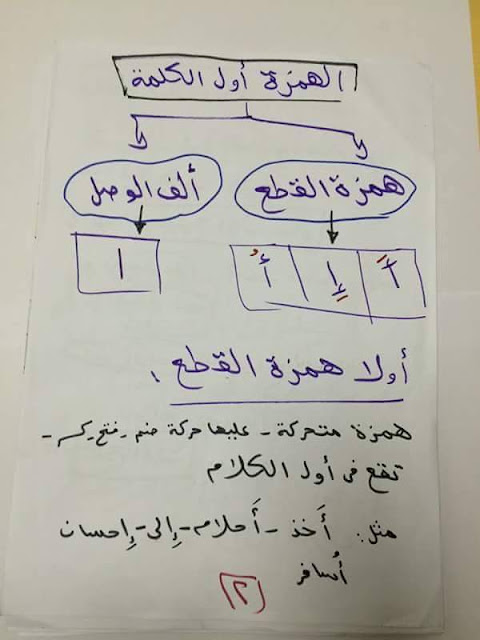 الهمزة أول الكلمة
همزة القطع
ألف الوصل
أَ إِ أُ
ا
أولا همزة القطع :
همزة متحركة - عليها حركة ضم - فتح - كسر -
تقع فى أول الكلام
مثل: أَخذ - أَحلام - إِلى - إِحسان
أُسافر
(٢)